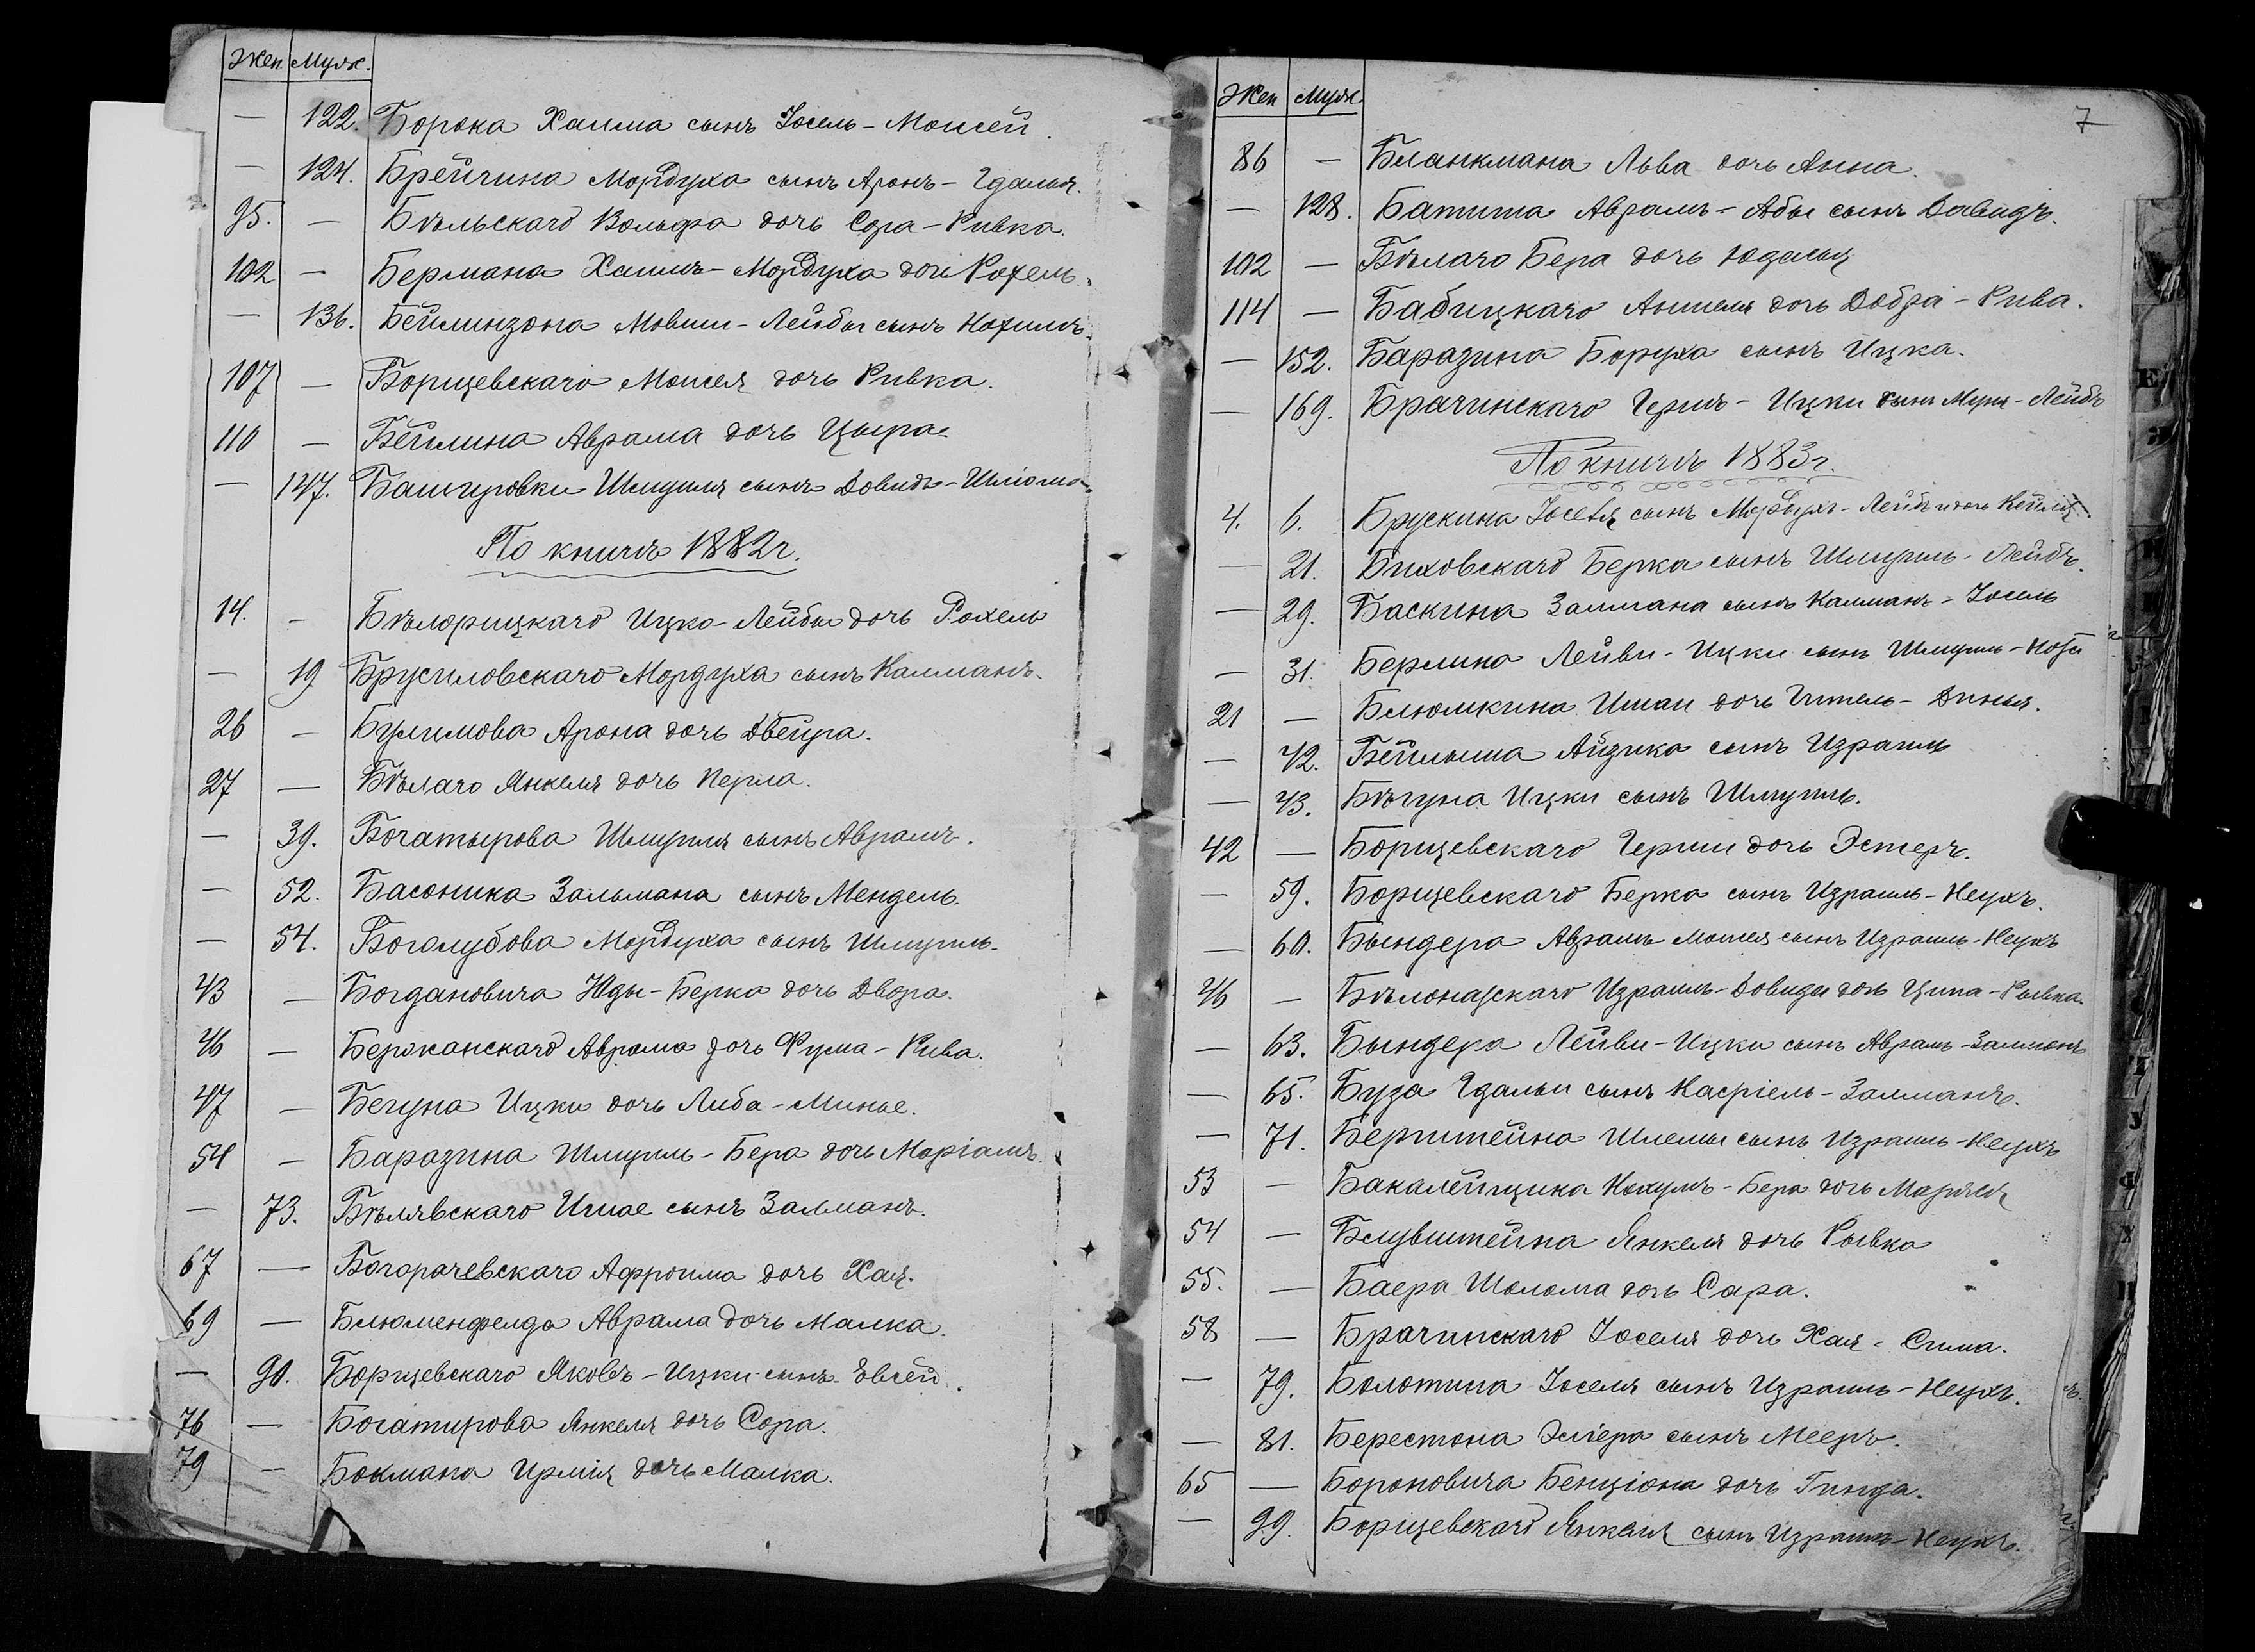 Жен Муж.
— 122. Борока Хаима сынъ Іосель-Моисей.
— 124. Брейчина Мордуха сынъ Аронъ-Гдалья.
95. — Бѣльскаго Вольфа дочь Сора-Ривка.
102 — Бермана Хаимъ-Мордуха дочь Рохель.
— 136. Бейлинзона Мовши-Лейбы сынъ Нохимъ.
107 — Борщевскаго Моисея дочь Ривка.
110 — Бейлина Аврама дочь Цыра.
— 147. Шмуиля сынъ Довидъ-Шліома.
По книгѣ 1882 г.
14. — Ицко-Лейбы дочь Рохель
— 19 Брусиловскаго Мордуха сынъ Калманъ.
26 — Булимова Арона дочь Двейра.
27 — Бѣлаго Янкеля дочь Перла.
— 39. Богатырова Шмуиля сынъ Аврамъ.
— 52. Басоника Зальмана сынъ Мендель.
— 54. Боголубова Мордуха сынъ Шмуиль.
43 — Богдановича Юды-Берка дочь Двора.
46 — Бержанскаго Аврама дочь Фрума-Рива.
47 — Бегуна Ицки дочь Либа-Минье.
54 — Баразина Шмуиль-Бера дочь Маріамъ.
— 73. Бѣлявскаго Ишае сынъ Залманъ.
67 — Богорачевскаго Афроима дочь Хая.
69 — Блюменфелда Аврама дочь Малка.
— 90. Борщевскаго Яковъ-Ицки сынъ Евсей.
76 — Богатирова Янкеля дочь Сора.
79 — Бокмана дочь Малка.
7
Жен Муж.
86 — Бланкмана Льва дочь Анна.
— 128. Батита Аврамъ-Абы сынъ Давидъ.
102 — Бѣлаго Бера дочь Юдасья
114 — Бабицкаго Аншеля дочь Добра-Рива.
— 152. Баразина Боруха сынъ Ицка.
— 169. Брагинскаго Гершъ-Ицки сынъ -Лейбъ
По книгѣ 1883 г.
4. 6. Брускина Іоселя сынъ Мордухъ-Лейбъ и дочь Кейля.
— 21. Биховскаго Берка сынъ Шмуиль-Лейбъ.
— 29. Баскина Залмана сынъ Калманъ-Іосель
— 31. Берлина Лейви-Ицки сынъ Шмуиль-Нота
21 — Блюмкина Ишаи дочь Гитель-Динья.
— 42. Айзика сынъ Израиль
— 43. Бѣгуна Ицки сынъ Шмуиль.
42 — Борщевскаго Герши дочь Эстеръ.
— 59. Борщевскаго Берка сынъ Израиль-Неухъ.
— 60. Бындера Аврамъ Мошея сынъ Израиль-Неухъ
46 — Израиль-Довида дочь Ципа-Рывка.
— 63. Бындера Лейви-Ицки сынъ Аврамъ-Залманъ
— 65. Буза Гдальи сынъ Касріель-Залманъ.
— 71. Бернштейна Шлемы сынъ Израиль-Неухъ
53 — Бакалейщика Нохумъ-Бера дочь Марьяся
54 — Блувштейна Янкеля дочь Рывка
55. — Баера Шолома дочь Сара.
58 — Брагинскаго Іоселя дочь Хая-Сима.
— 79. Болотина Іоселя сынъ Израиль-Неухъ.
— 81. Берестона Эліера сынъ Мееръ.
65 — Бороновича Бенціона дочь Гинда.
— 99. Борщевскаго Янкеля сынъ Израиль-Неухъ.